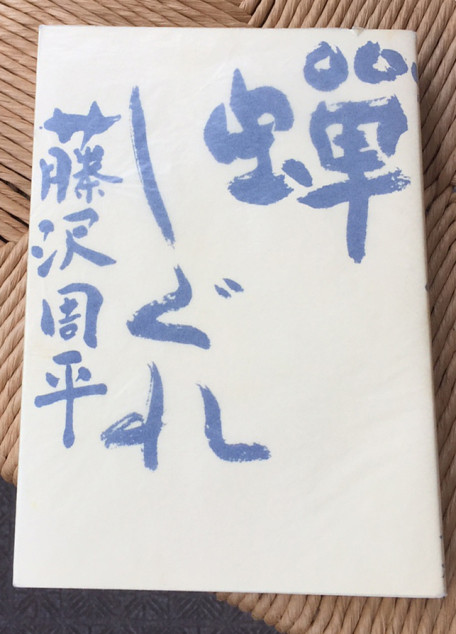 蟬
しぐれ
藤沢周平